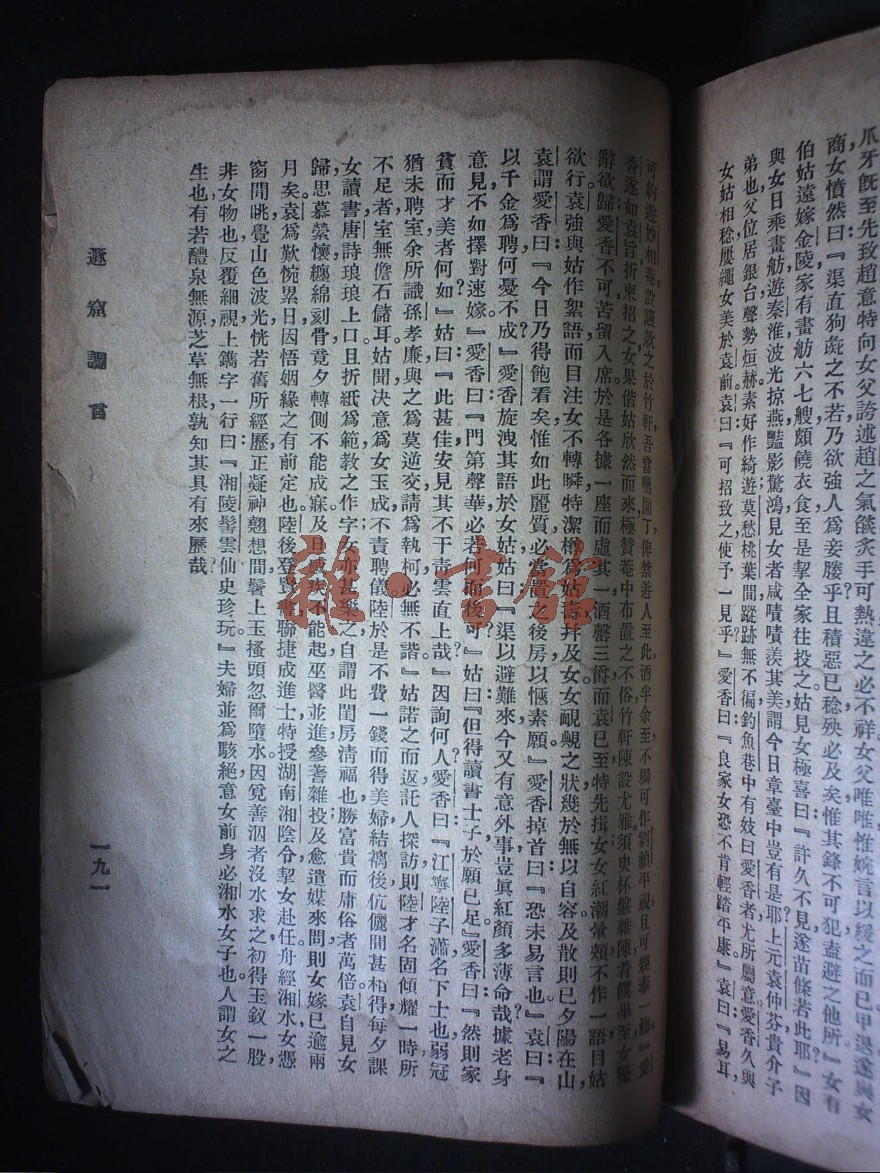 爪牙旣至先致趙意特向女父誇述趙之氣燄炙手可熱違之必不祥女父唯唯惟婉言以緩之而已甲退遂與女
商女憤然曰『渠直狗彘之不若乃欲強人爲妾媵乎且積惡已稔殃必及矣惟其鋒不可犯盍避之他所』女有
伯姑遠嫁金陵家有畫舫六七艘頗饒衣食至是挈全家往投之姑見女極喜曰『許久不見遂苗條若此耶』因
與女日乘畫舫遊秦淮波光掠燕豔影驚鴻見女者咸嘖嘖羨其美謂今日章臺中豈有是耶上元袁仲芬貴介子
弟也父位居銀台聲勢烜赫素好作綺遊莫愁桃葉間蹤跡無不徧釣魚巷中有妓曰愛香者尤所屬意愛香久與
女姑相稔屢繩女美於袁前袁曰『可招致之使予一見乎』愛香曰『良家女恐不肯輕踏平康』袁曰『易耳
可約遊妙相菴設讌款之於竹軒吾當囑園丁俾禁遊人至此酒半余至不獨可作劉禎平視且可親奉一觴』愛
香遂如袁旨折柬招之女果偕姑欣然而來極贊菴中布置之不俗竹軒陳設尤雅須臾杯盤雜陳肴饌畢至女堅
辭欲歸愛香不可苦留入席於是各據一座而虛其一酒罄三爵而袁已至特先揖女女紅潮暈頰不作一語目姑
欲行袁強與姑作絮語而目注女不轉瞬特潔樽爲姑壽幷及女女靦覥之狀幾於無以自容及散則已夕陽在山
袁謂愛香曰『今日乃得飽看矣惟如此麗質必當置之後房以愜素願』愛香掉首曰『恐未易言也』袁曰『
以千金爲聘何憂不成』愛香旋洩其語於女姑姑曰『渠以避難來今又有意外事豈眞紅顏多薄命哉據老身
意見不如擇對速嫁』愛香曰『門第聲華必若何而後可』姑曰『但得讀書士子於願已足』愛香曰『然則家
貧而才美者何如』姑曰『此甚佳安見其不干靑雲直上哉』因詢何人愛香曰『江寧陸子瀟名下士也弱冠
猶未聘室余所識孫孝廉與之爲莫逆交請爲執柯必無不諧』姑諾之而返託人探訪則陸才名固傾耀一時所
不足者室無儋石儲耳姑聞決意爲女玉成不責聘儀陸於是不費一錢而得美婦結褵後伉儷間甚相得每夕課
女讀書唐詩琅琅上口且折紙爲範敎之作字女亦甚樂之自謂此閨房淸福也勝富貴而庸俗者萬倍袁自見女
歸思慕縈懷纏綿刻骨竟夕轉側不能成寐及旦成疾不能起巫醫並進參蓍雜投及愈遣媒來問則女嫁已逾兩
月矣袁爲歎惋累日因悟姻緣之有前定也陸後登賢書聯捷成進士特授湖南湘陰令挈女赴任舟經湘水女憑
窗閒眺覺山色波光恍若舊所經歷正凝神翹想間鬢上玉搔頭忽爾墮水因覓善泅者沒水求之初得玉釵一股
非女物也反覆細視上鐫字一行曰『湘陵鬘雲仙史珍玩』夫婦並爲駭絕意女前身必湘水女子也人謂女之
生也有若醴泉無源芝草無根孰知其具有來歷哉
遯窟讕言
一九一
雜·書館